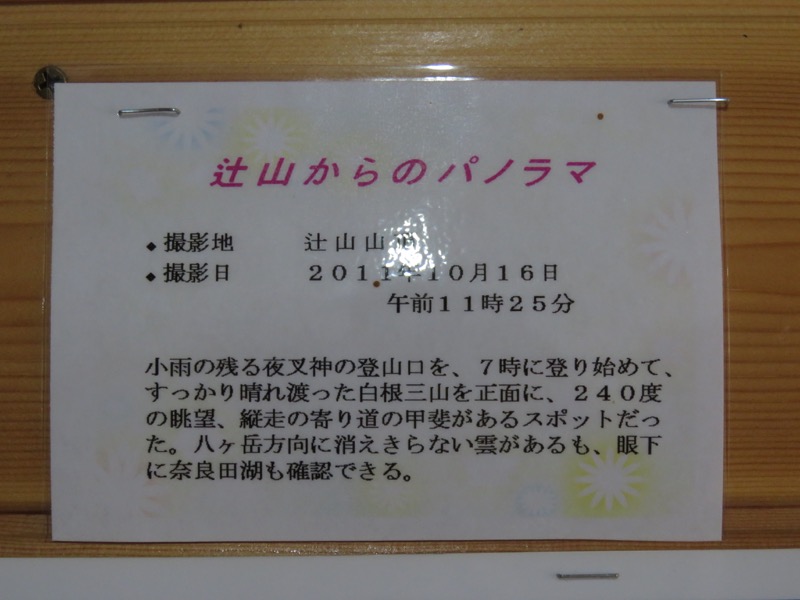 辻山からのパノラマ
◆撮影地 辻山山頂
◆撮影日 ２０１１年１０月１６日
午前１１時２５分
小雨の残る夜叉神の登山口を、７時に登り始めて、
すっかり晴れ渡った白根三山を正面に、２４０度
の眺望、縦走の寄り道の甲斐があるスポットだっ
た。八ヶ岳方向に消えきらない雲があるも、眼下
に奈良田湖も確認できる。